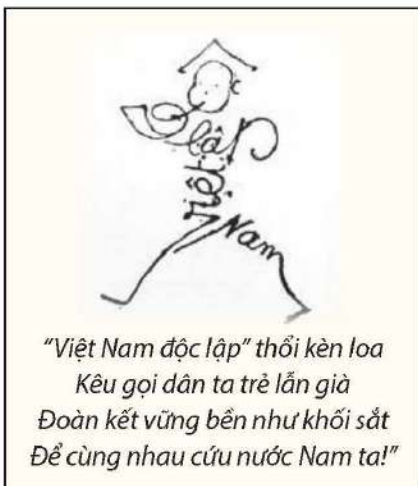 độc
lập
Việt
Nam
"Việt Nam độc lập" thổi kèn loa
Kêu gọi dân ta trẻ lẫn già
Đoàn kết vững bền như khối sắt
Để cùng nhau cứu nước Nam ta!"